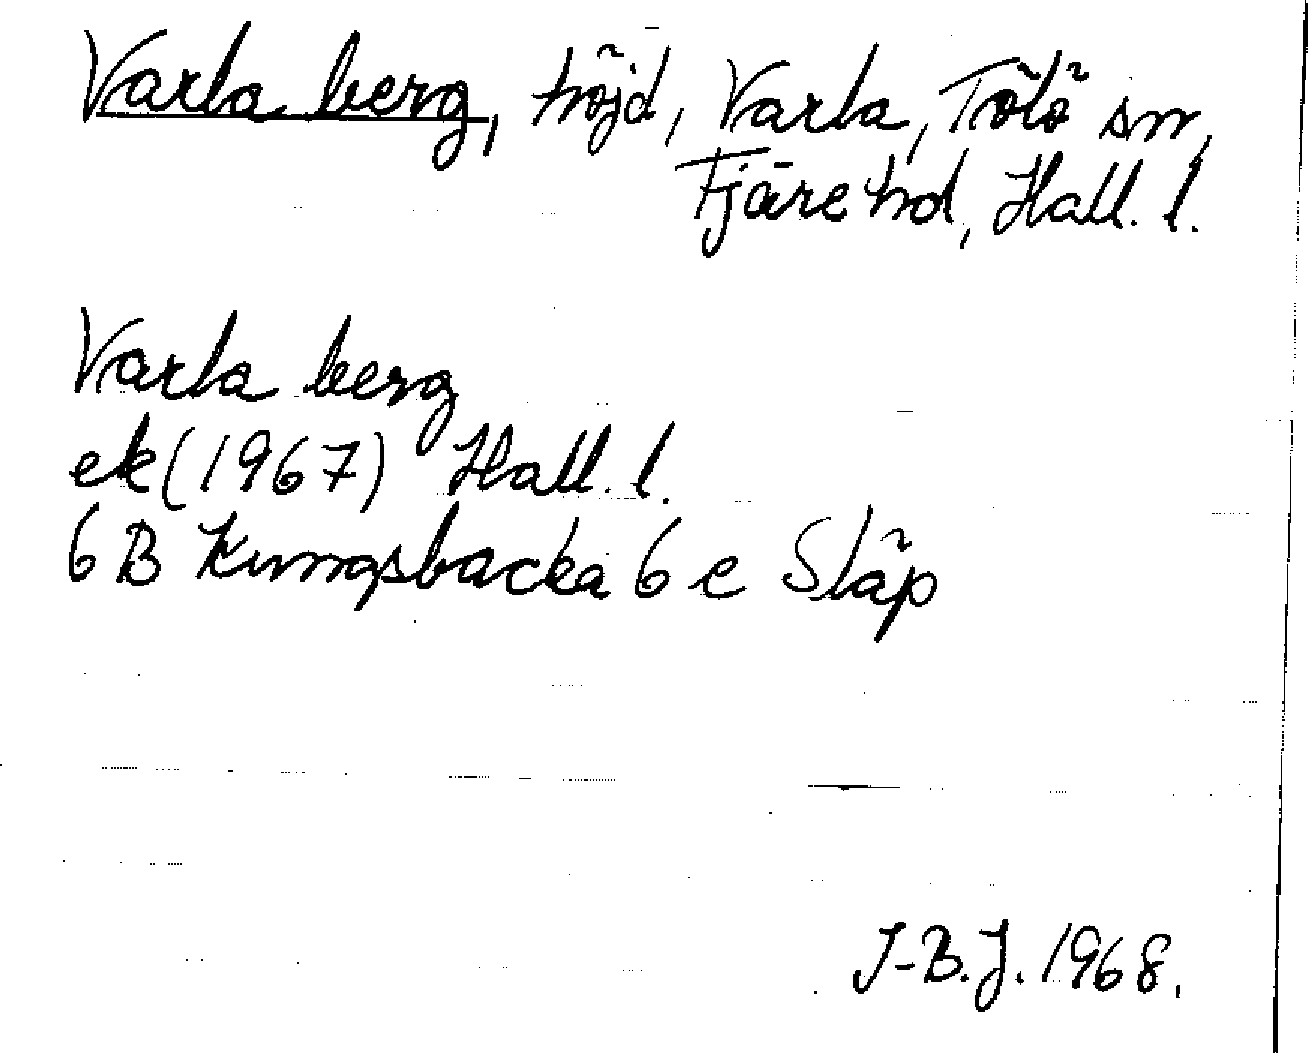 Varla berg, höjd, Varla, Tölö sn,
Fjäre hd, Hall. l.
Varla berg
ek (1967) Hall. l.
6 B Kungsbacka 6 e Släp
J-B.J. 1968.